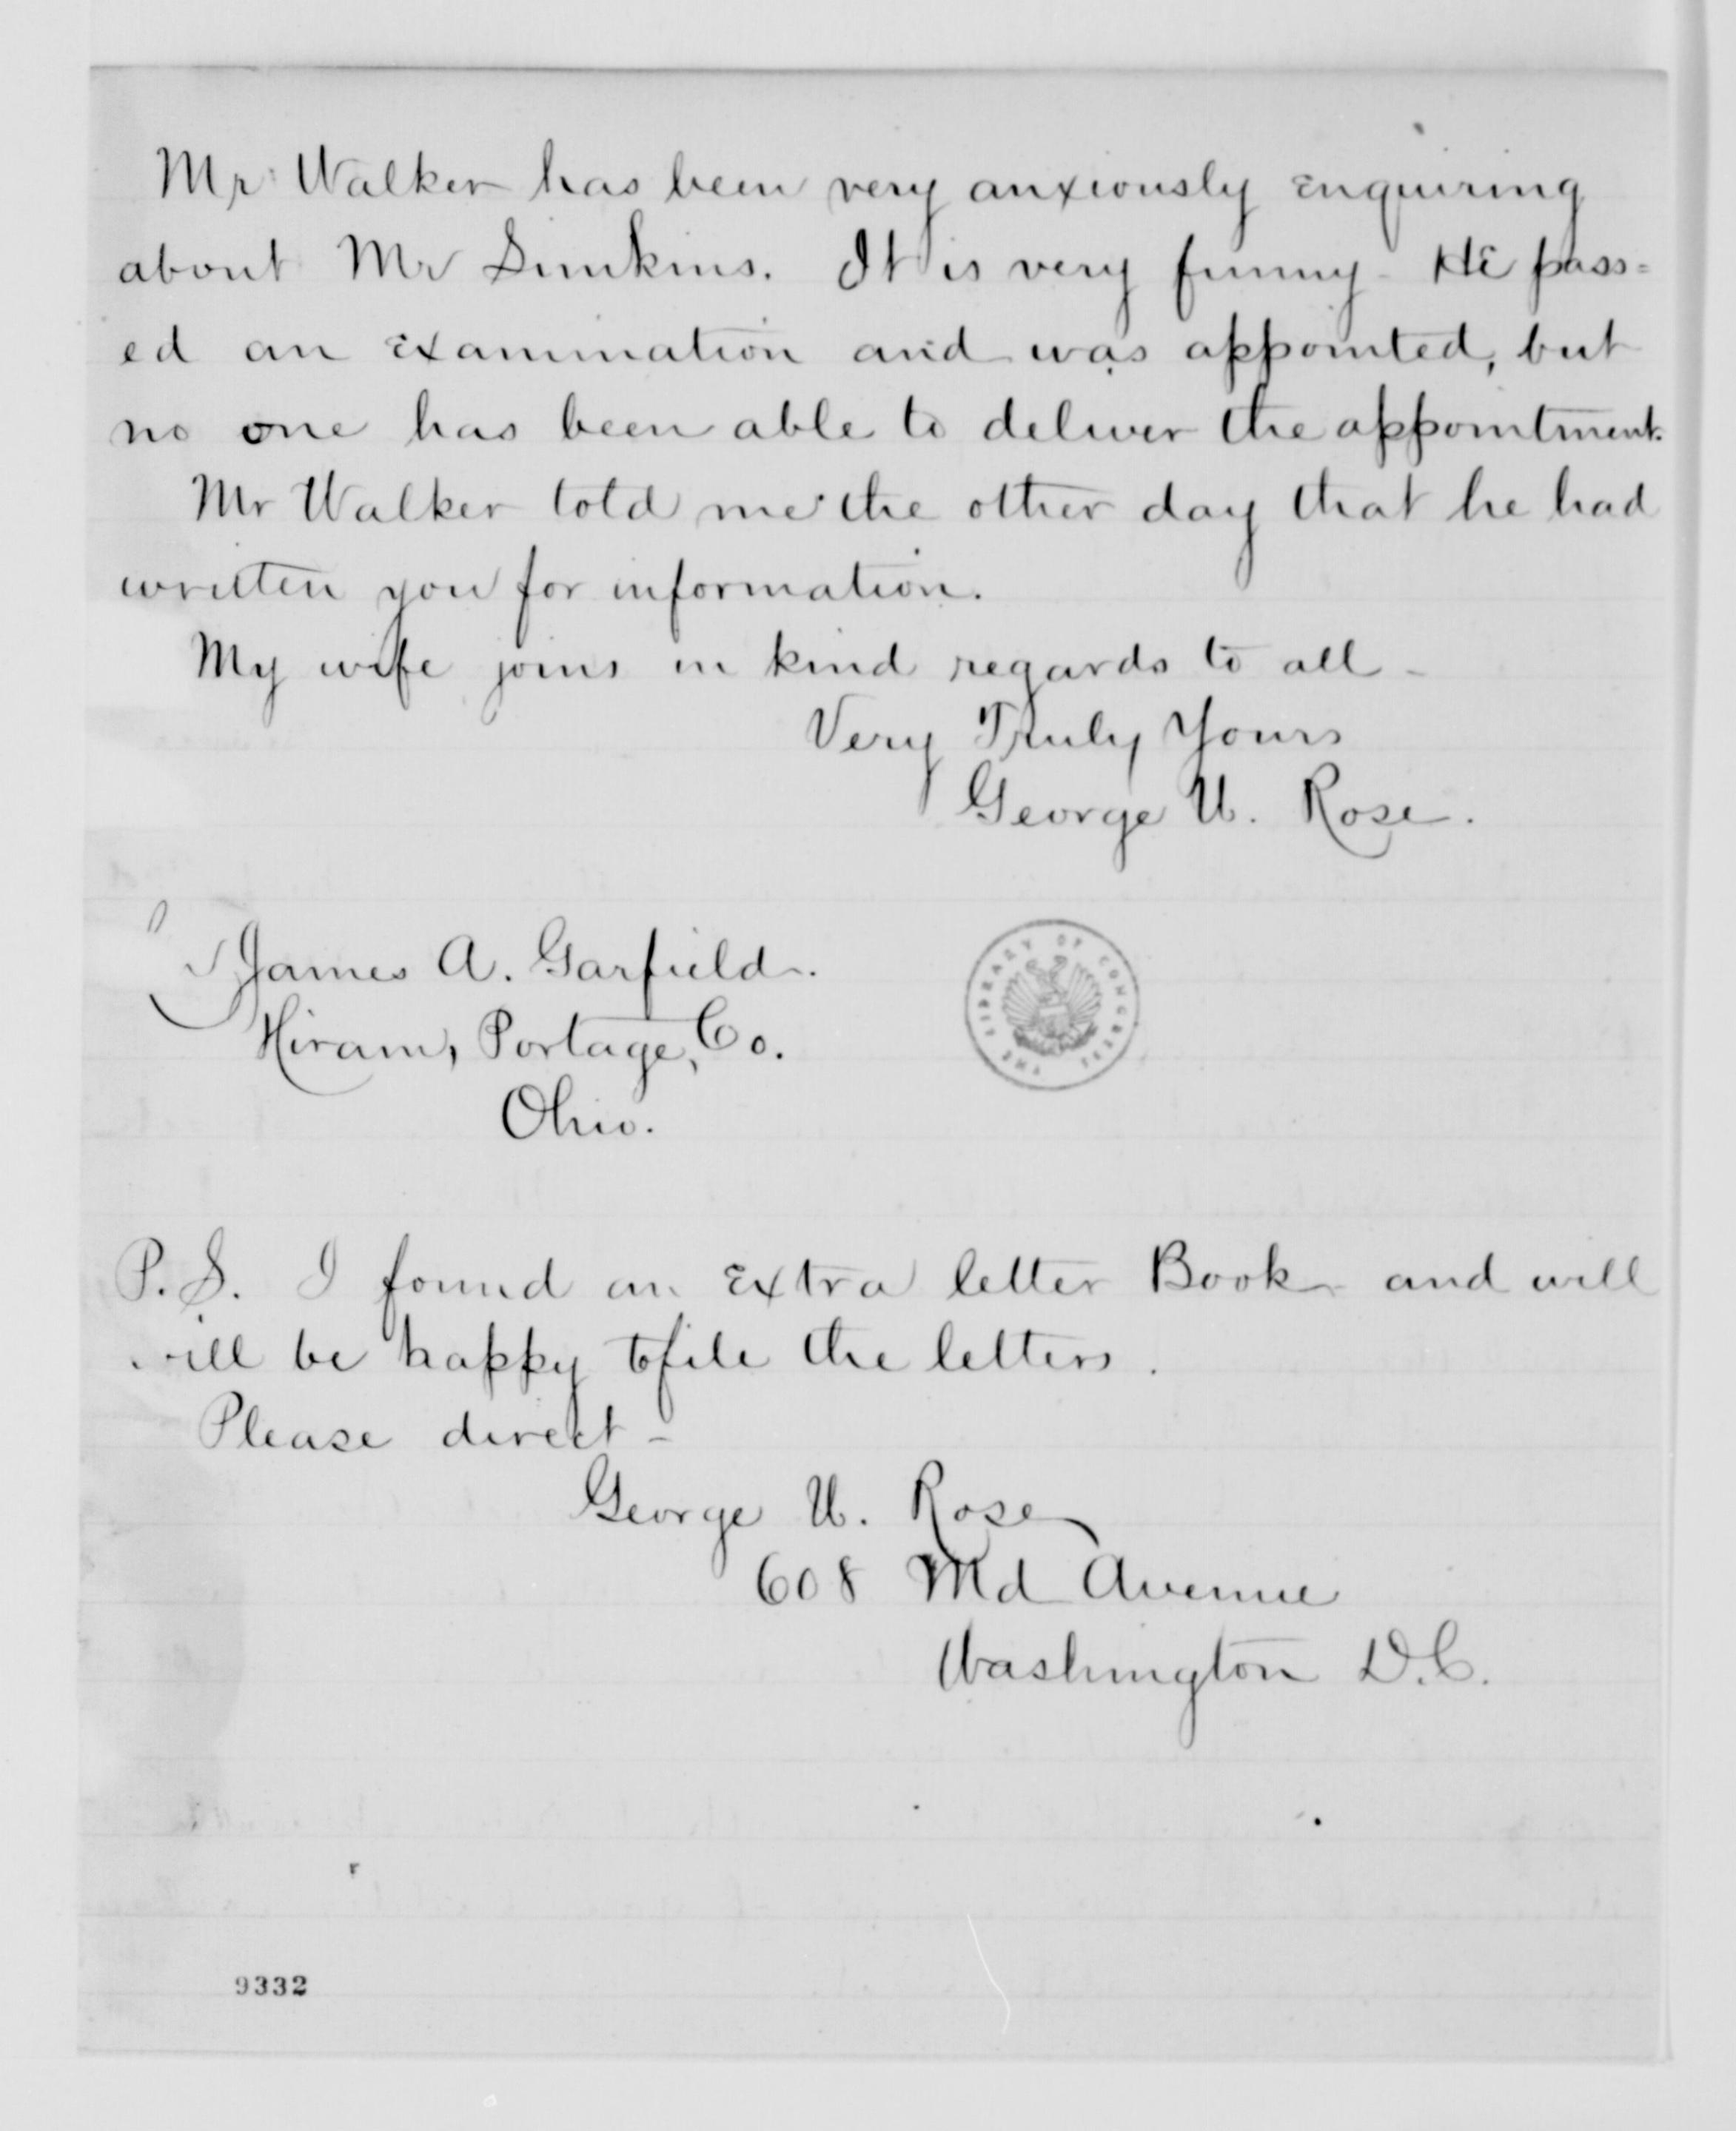 Mr Walker has been very anxiously enquiring
about Mr Simkins. It is very funny - He pass=
ed an examination and was appointed, but
no one has been able to deliver the appointment.
Mr Walker told me the other day that he had
written you for information.
My wife joins in kind regards to all -
Very Truly Yours
George U. Rose.
James A. Garfield.
Hiram, Portage, Co.
Ohio.
THE LIBRARY OF CONGRESS
P.S. I found an extra letter Book and will
will be happy to file the letters.
Please direct -
George U. Rose
608 Md Avenue
Washington D.C.
9332